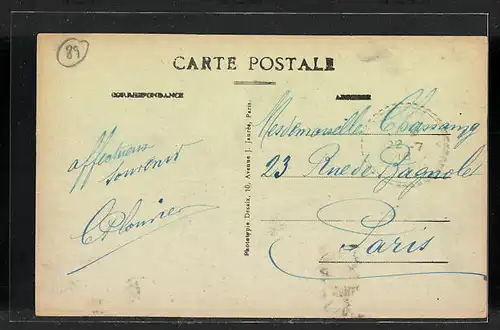 89
CARTE POSTALE
CORRESPONDANCE
ADRESSE
affectueux
souvenir
Mesdemoiselles Chassaing
23 Rue de Bagnolet
Paris
22-7
Phototypie Desaix, 10, Avenue J. Jaurès, Paris.